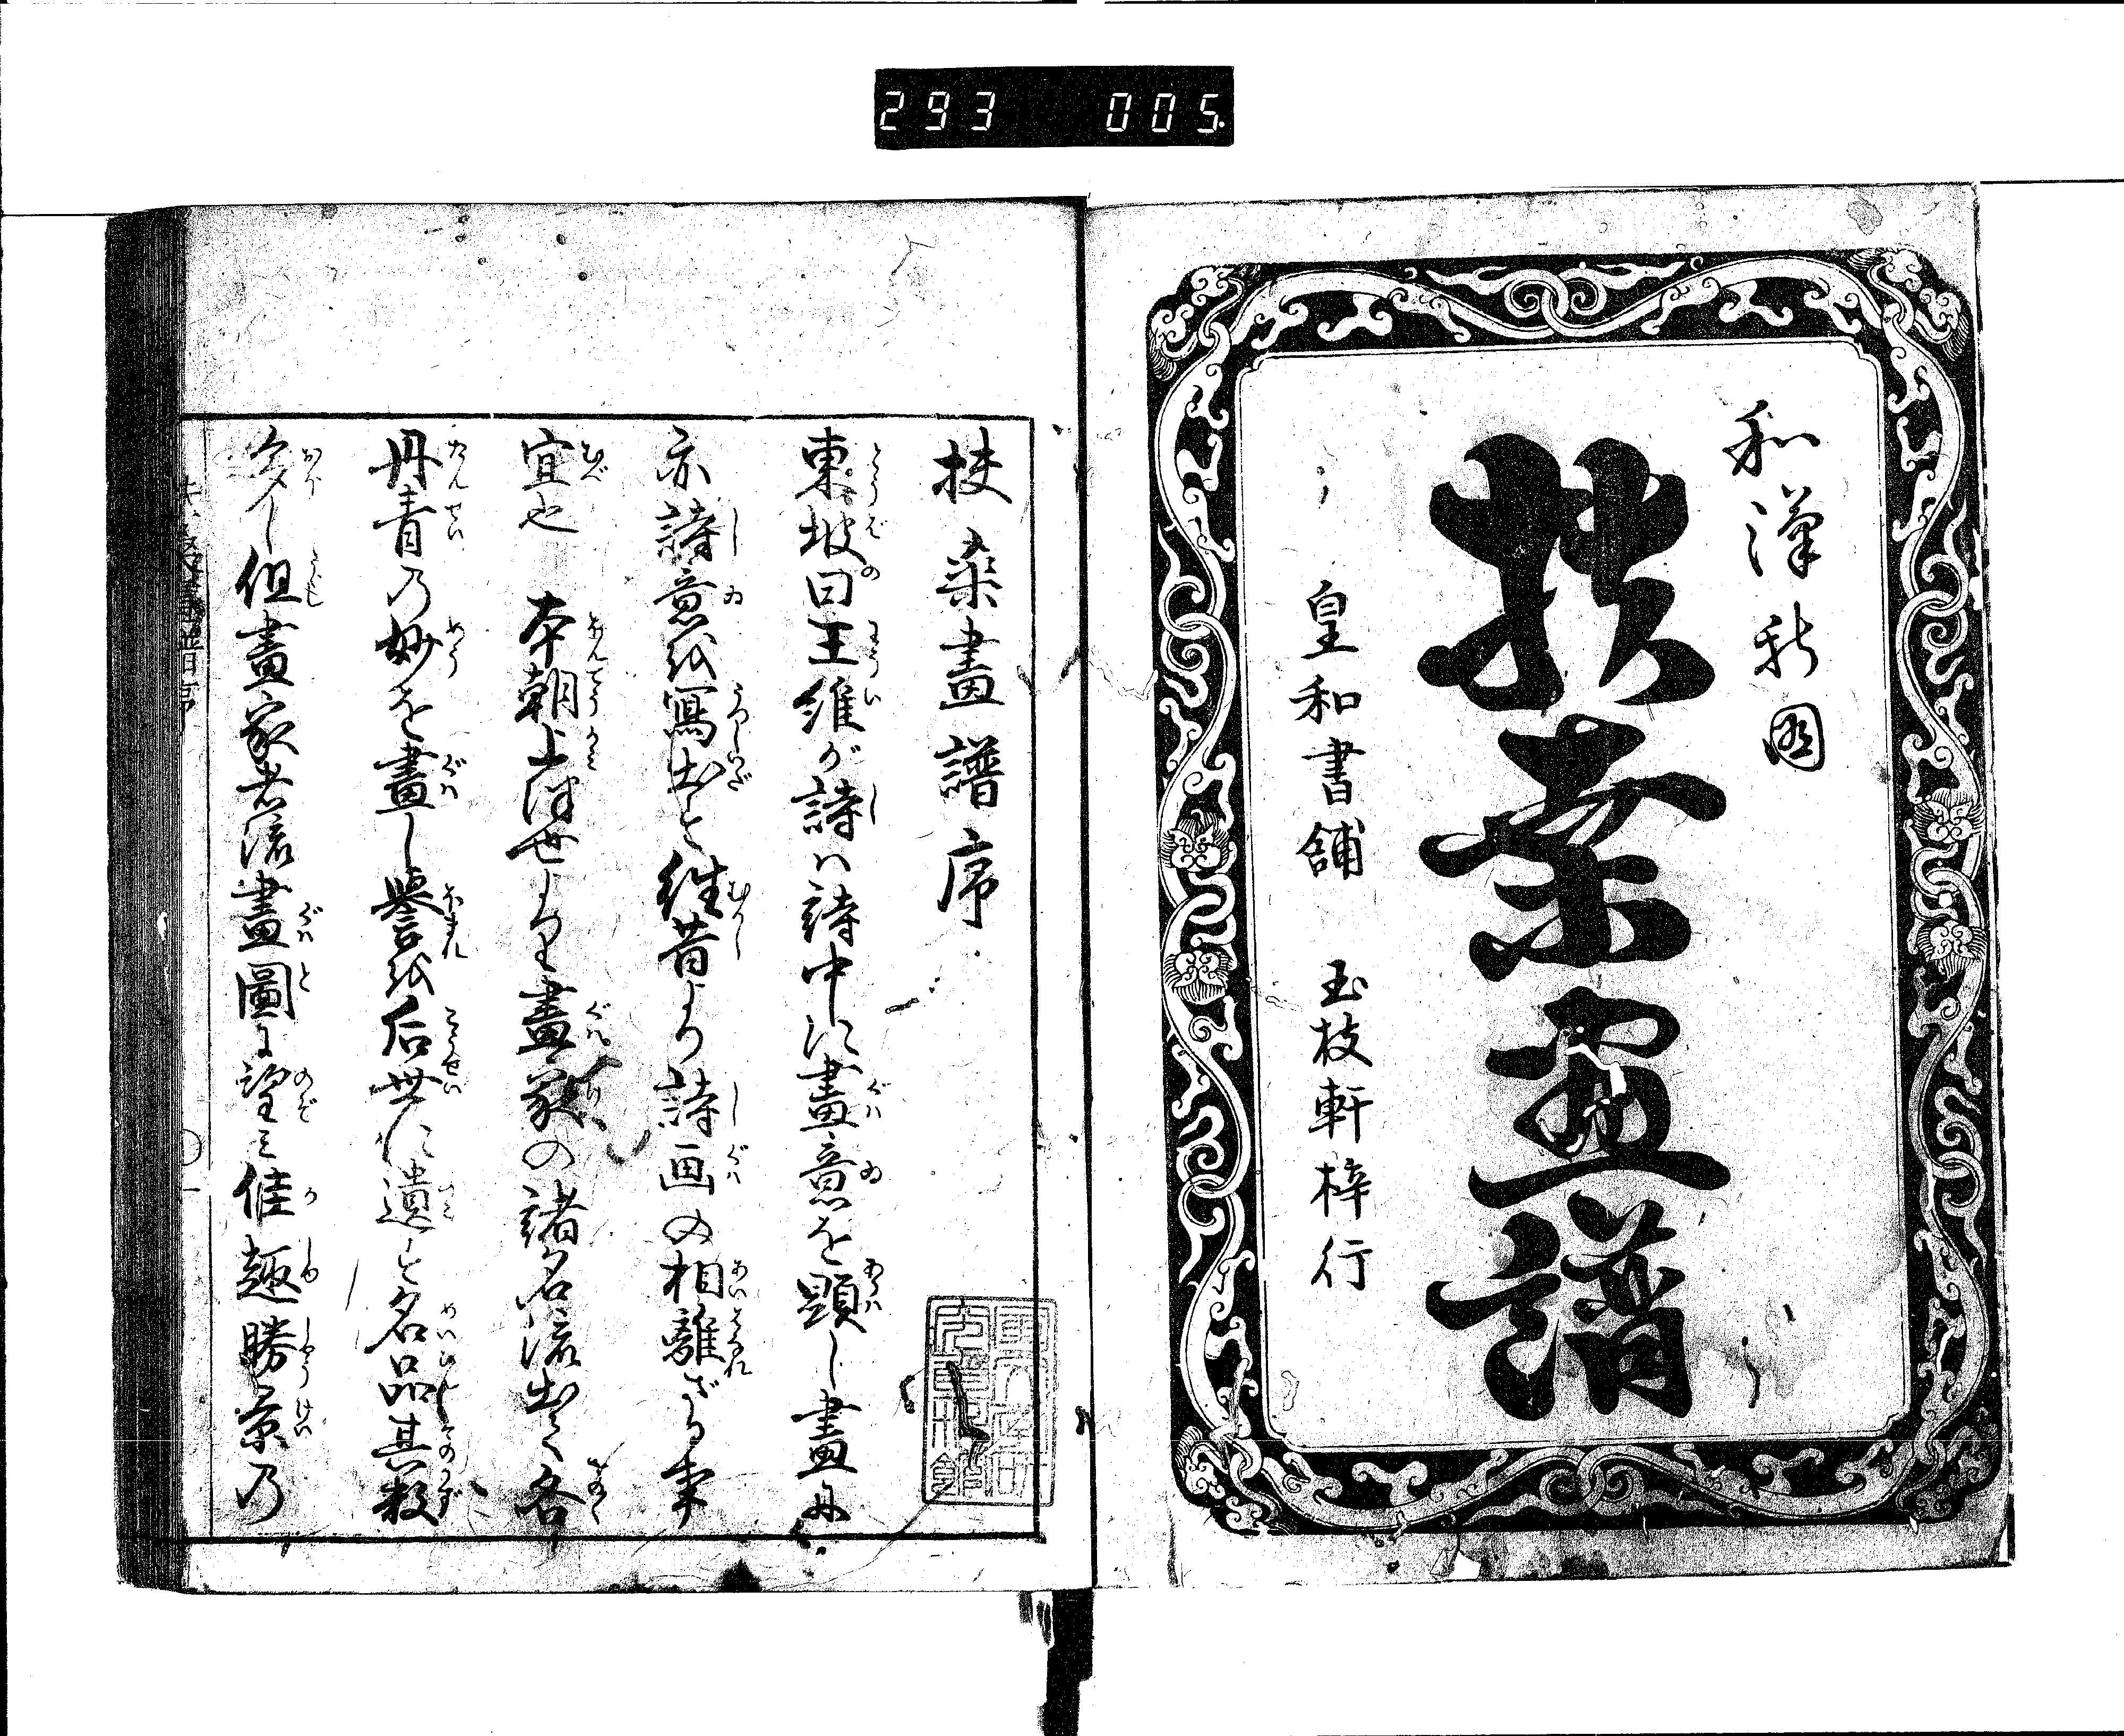 293 005
和漢新圖
扶桒画譜
皇和書舗 玉枝軒梓行
扶桒畫譜序
東坡曰王維が詩ハ詩中に畫意を顕し畫に
亦詩意を寫出と往昔より詩画の相離ざる事
宜也 本朝上津世より畫家の諸名流出て各
丹青乃妙を畫し譽を后世に遺す名品其数
多し但畫家者流畫圖に望ミ佳趣勝景乃